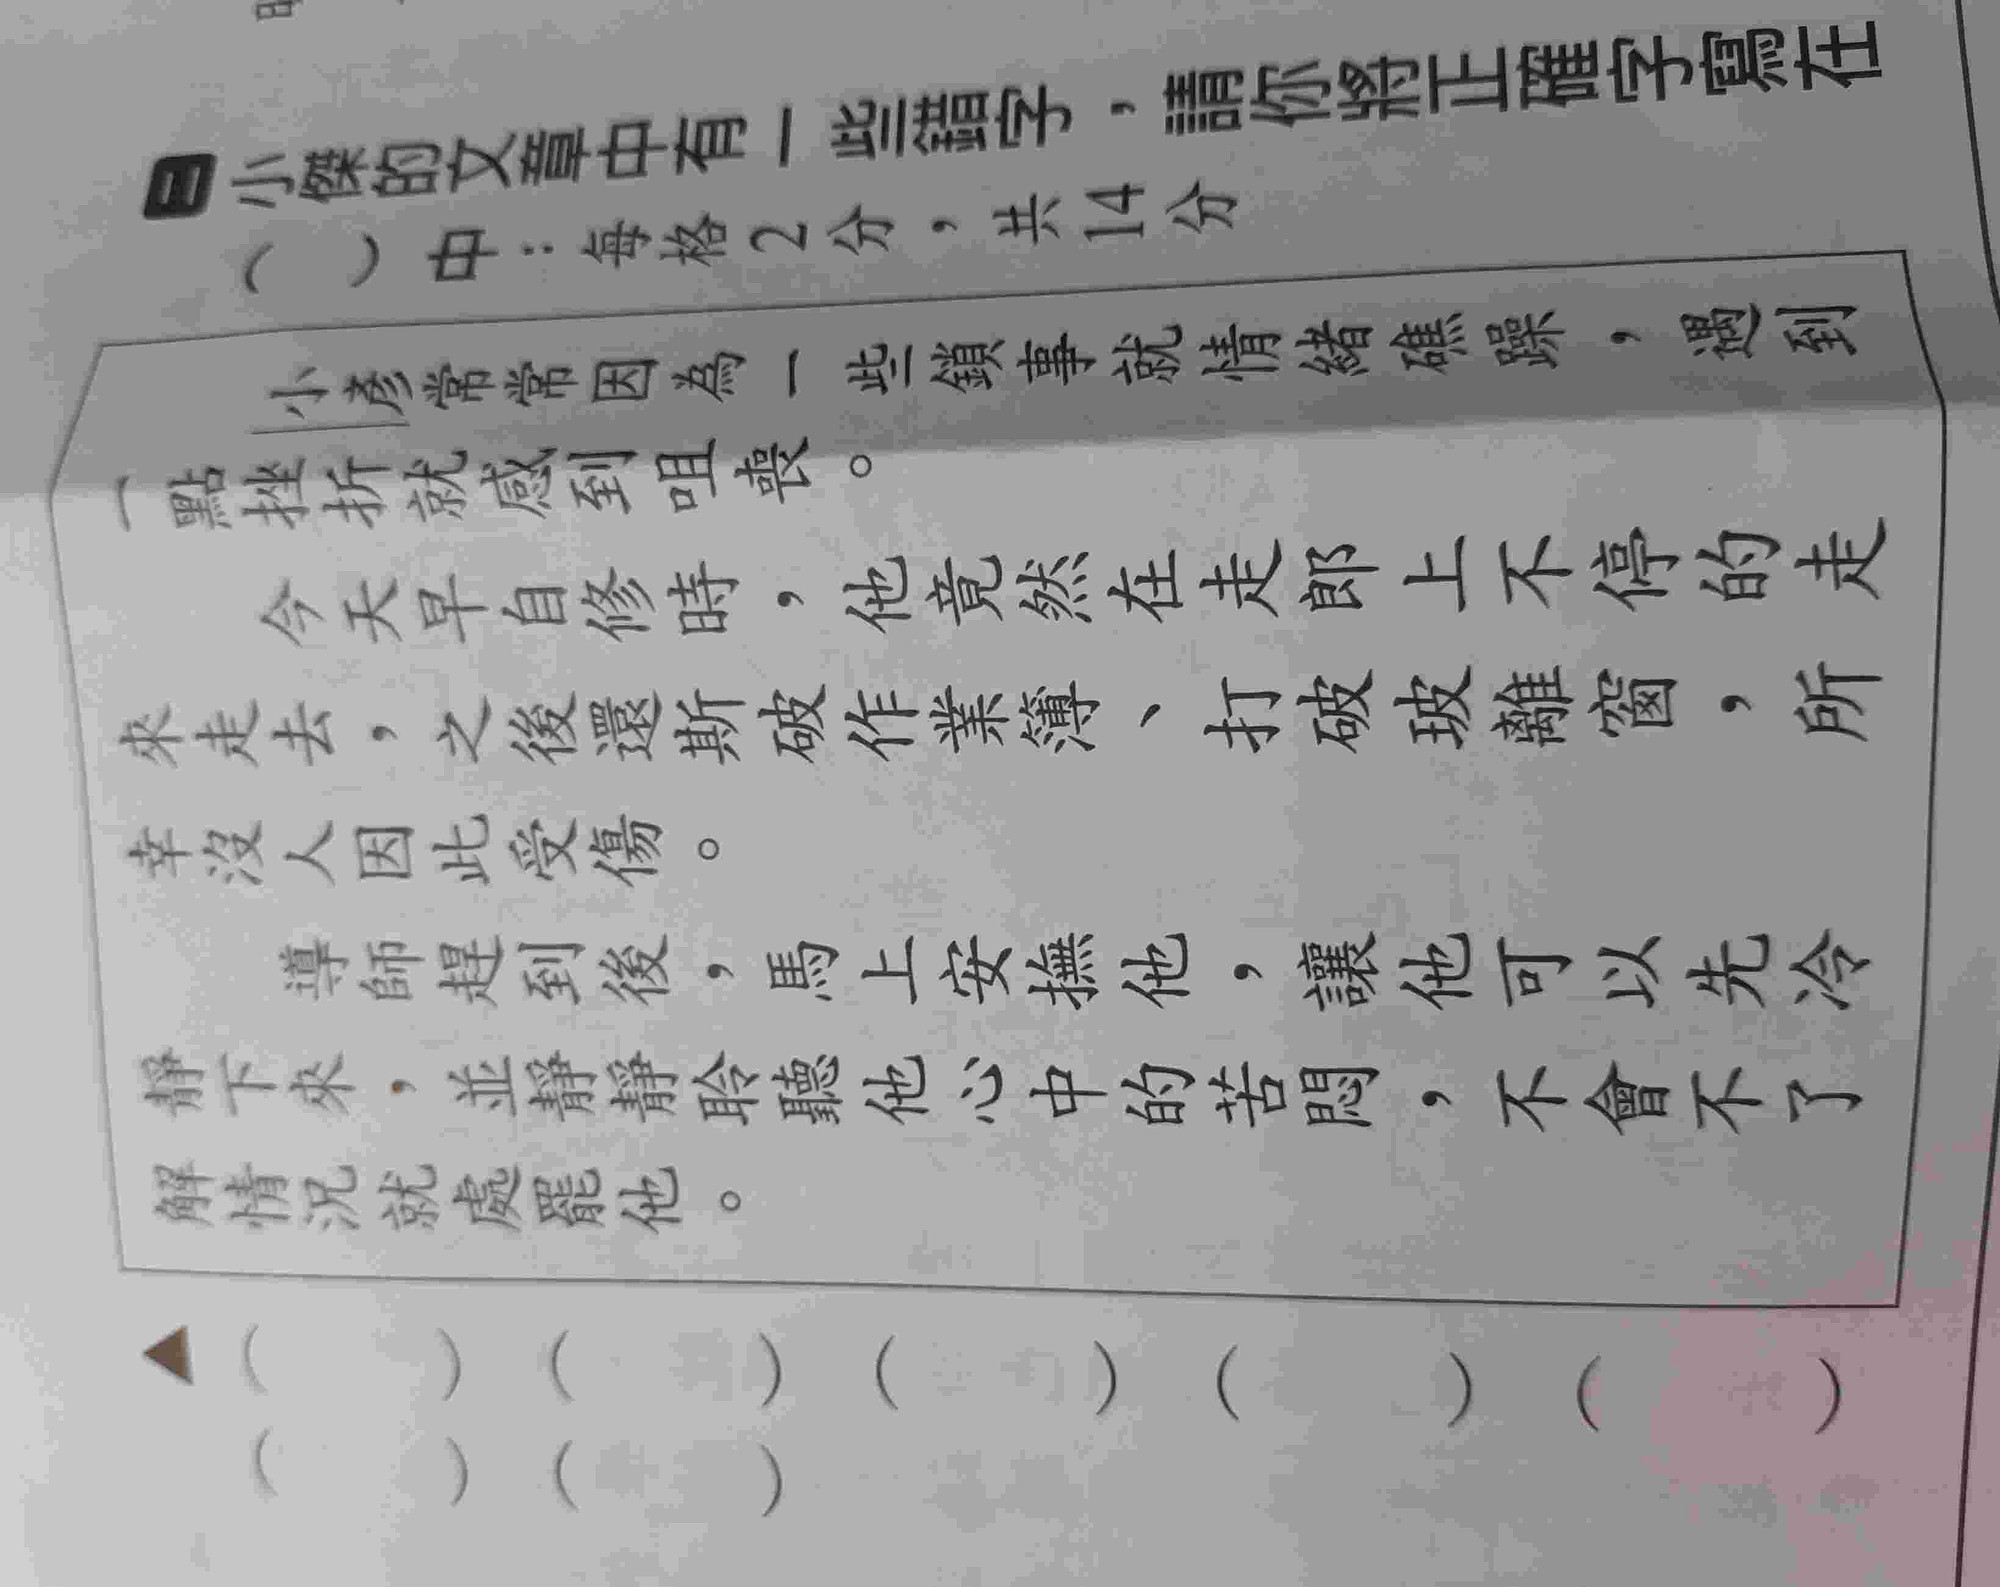 日小傑的文章中有一些錯字，請你將正確字寫在
（　）中：每格2分，共14分
小彥常常因為一些鎖事就情緒礁躁，遇到
一點挫折就感到咀喪。
今天早自修時，他竟然在走郎上不停的走
來走去，之後還斯破作業簿、打破玻離窗，所
幸沒人因此受傷。
導師趕到後，馬上安撫他，讓他可以先冷
靜下來，並靜靜聆聽他心中的苦悶，不會不了
解情況就處罷他。
▲（　）（　）（　）（　）（　）
（　）（　）